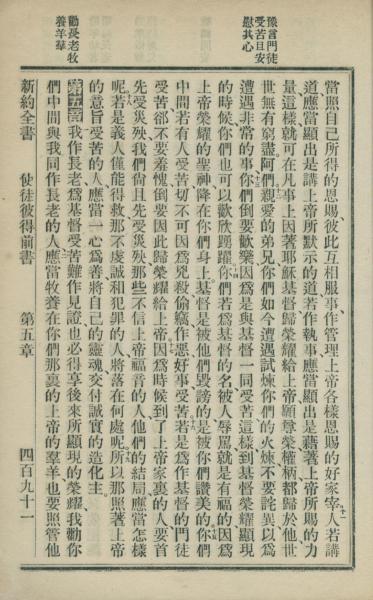 豫言門徒
受苦且安
慰其心
勸長老牧
養羊羣
當照自己所得的恩賜彼此互相服事作管理上帝各樣恩賜的好家宰人若講
道應當顯出是講上帝所默示的道若作執事應當顯出是藉著上帝所賜的力
量這樣就可在凡事上因著耶穌基督歸榮耀給上帝願尊榮權柄都歸於他世
世無有窮盡阿們親愛的弟兄你們如今遭遇試煉你們的火煉不要詫異以爲
遭遇非常的事你們倒要歡樂因爲是與基督一同受苦這樣到基督榮耀顯現
的時候你們也可以歡欣踴躍你們若爲基督的名被人辱罵就是有福的因爲
上帝榮耀的聖神降在你們身上基督是被他們毀謗的是被你們讚美的你們
中間若有人受苦切不可因爲兇殺偷竊作惡好事受苦若是爲作基督的門徒
受苦卻不要羞愧倒要因此歸榮耀給上帝因爲時候到了上帝家裏的人要首
先受災殃我們尙且先受災殃那些不信上帝福音的人他們的結局應當怎樣
呢若是義人僅能得救那不虔誠和犯罪的人將落在何處呢所以那照著上帝
的意旨受苦的人應當一心爲善將自己的靈魂交付誠實的造化主
第五章我作長老爲基督受苦難作見證也必得享後來所顯現的榮耀我勸你
們中間與我同作長老的人應當牧養在你們那裏的上帝的羣羊也要照管他
新約全書 使徒彼得前書 第五章 四百九十一